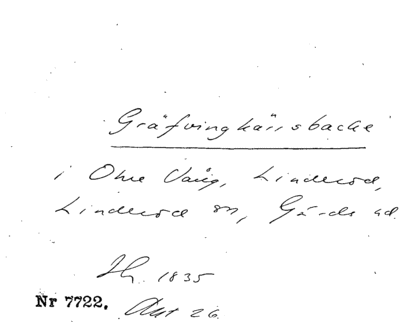 Gräfvinghärsbacke
i Ohre Vång, Linderöd,
Linderöd sn, Gärds hd.
1835
Nr 7722. Akt 26